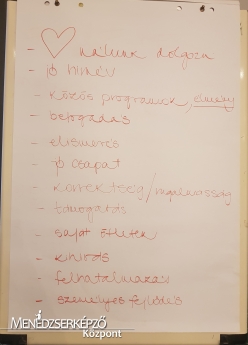 - ♡ nálunk dolgozni
- jó hírnév
- közös programok, élmény
- befogadás
- elismerés
- jó csapat
- korrektség / rugalmasság
- támogatás
- saját ötletek
- kihívás
- felhatalmazás
- személyes fejlődés
MENEDZSERKÉPZŐ
Központ